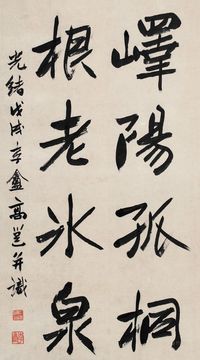 嶧陽孤桐
根老氷泉
光緒戊戌李盦高邕并識